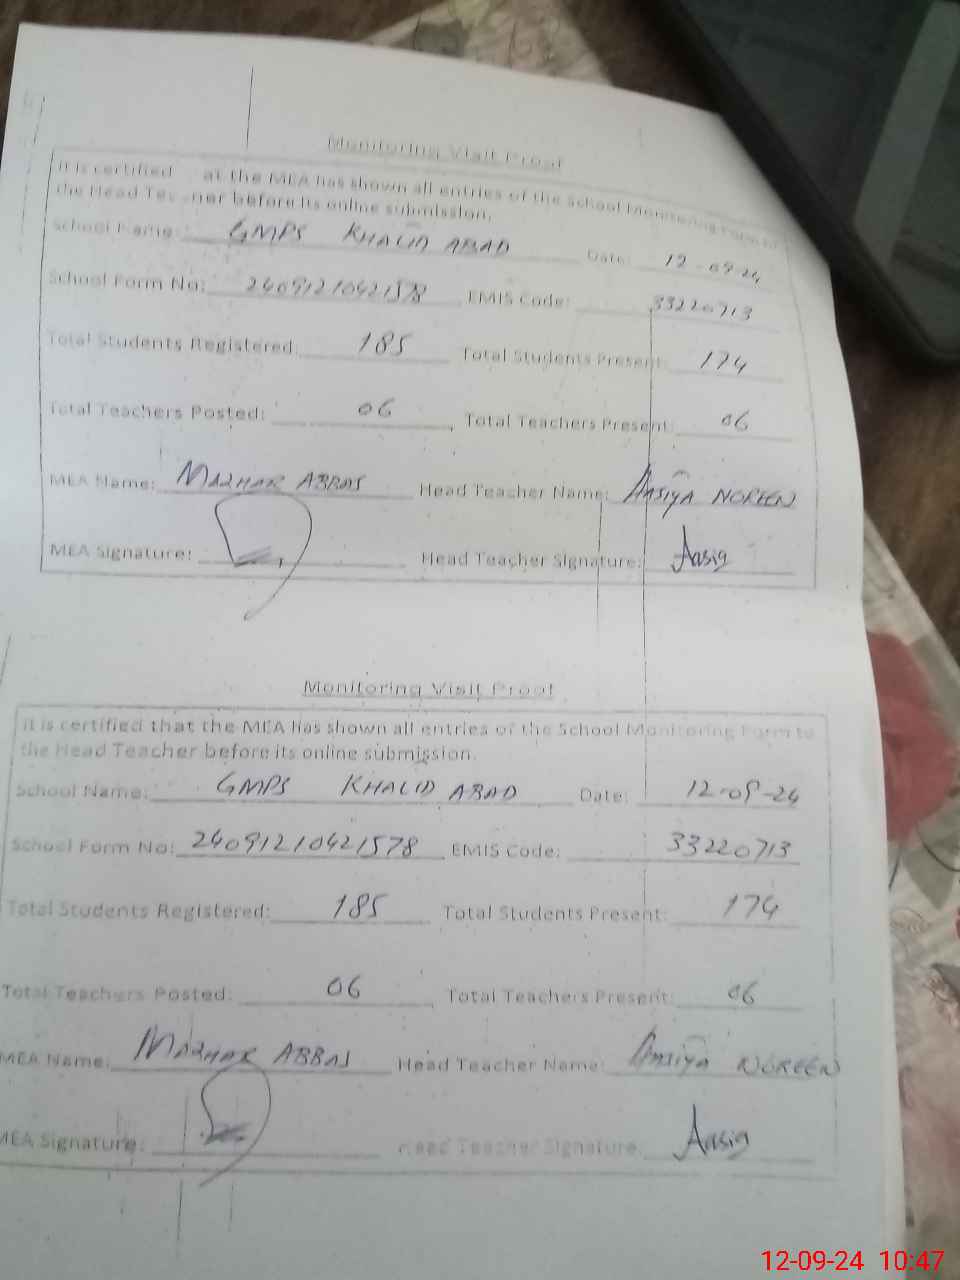 Monitoring Visit Proof
it is certified at the MEA has shown all entries of the School Monitoring Form to
the Head Teacher before its online submission.
School Name: GMPS KHALID ABAD Date: 12-09-24
School Form No: 24091210421578 EMIS Code: 33220713
Total Students Registered: 185 Total Students Present: 174
Total Teachers Posted: 06 Total Teachers Present: 06
MEA Name: MAZHAR ABBAS Head Teacher Name: Aasiya NOREEN
MEA Signature: Head Teacher Signature: Aasiy
Monitoring Visit Proof
it is certified that the MEA has shown all entries of the School Monitoring Form to
the Head Teacher before its online submission.
School Name: GMPS KHALID ABAD Date: 12-09-24
School Form No: 24091210421578 EMIS Code: 33220713
Total Students Registered: 185 Total Students Present: 174
Total Teachers Posted: 06 Total Teachers Present: 06
MEA Name: MAZHAR ABBAS Head Teacher Name: Aasiya NOREEN
MEA Signature: Head Teacher Signature: Aasiy
12-09-24 10:47